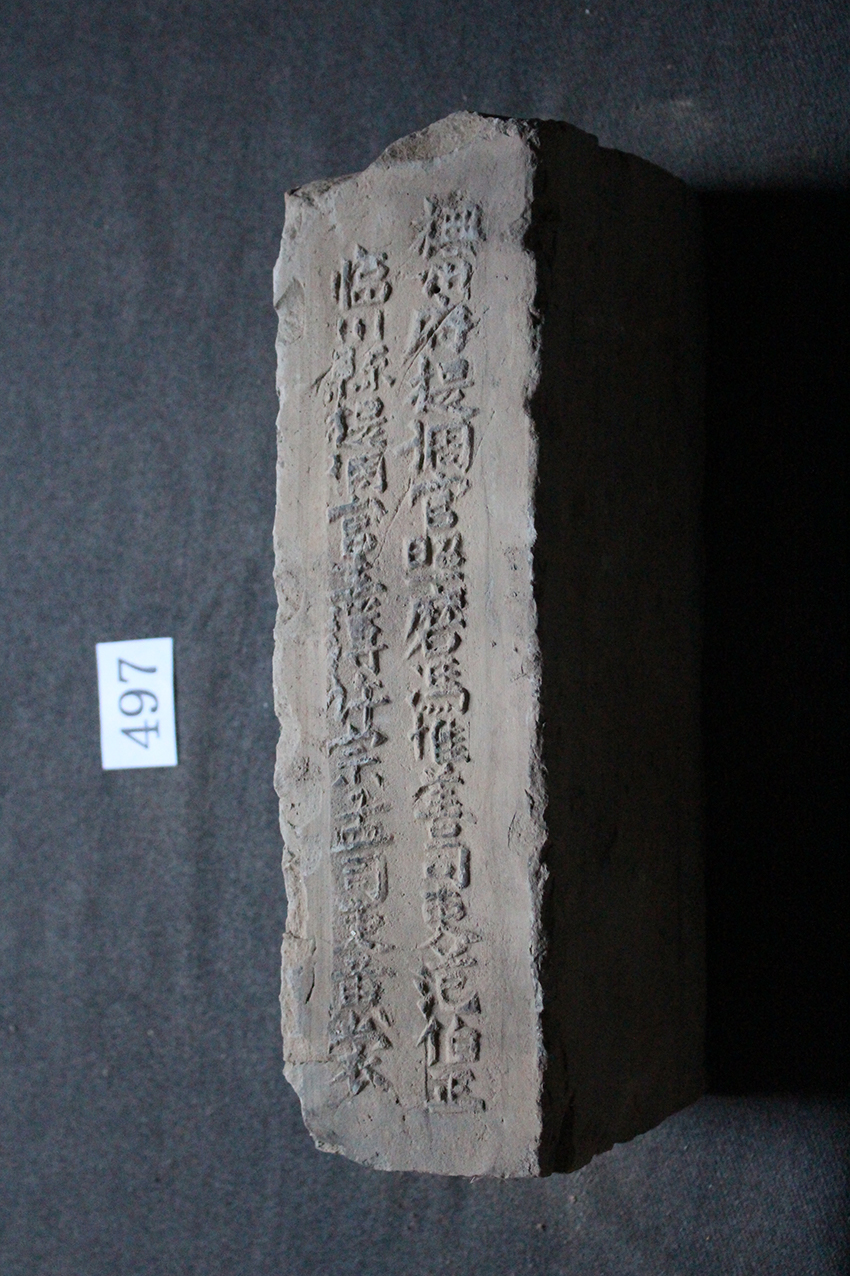 撫州府提調官照磨馮惟書司吏范伯正
臨川縣提調官主簿許宗孟司吏黃
497